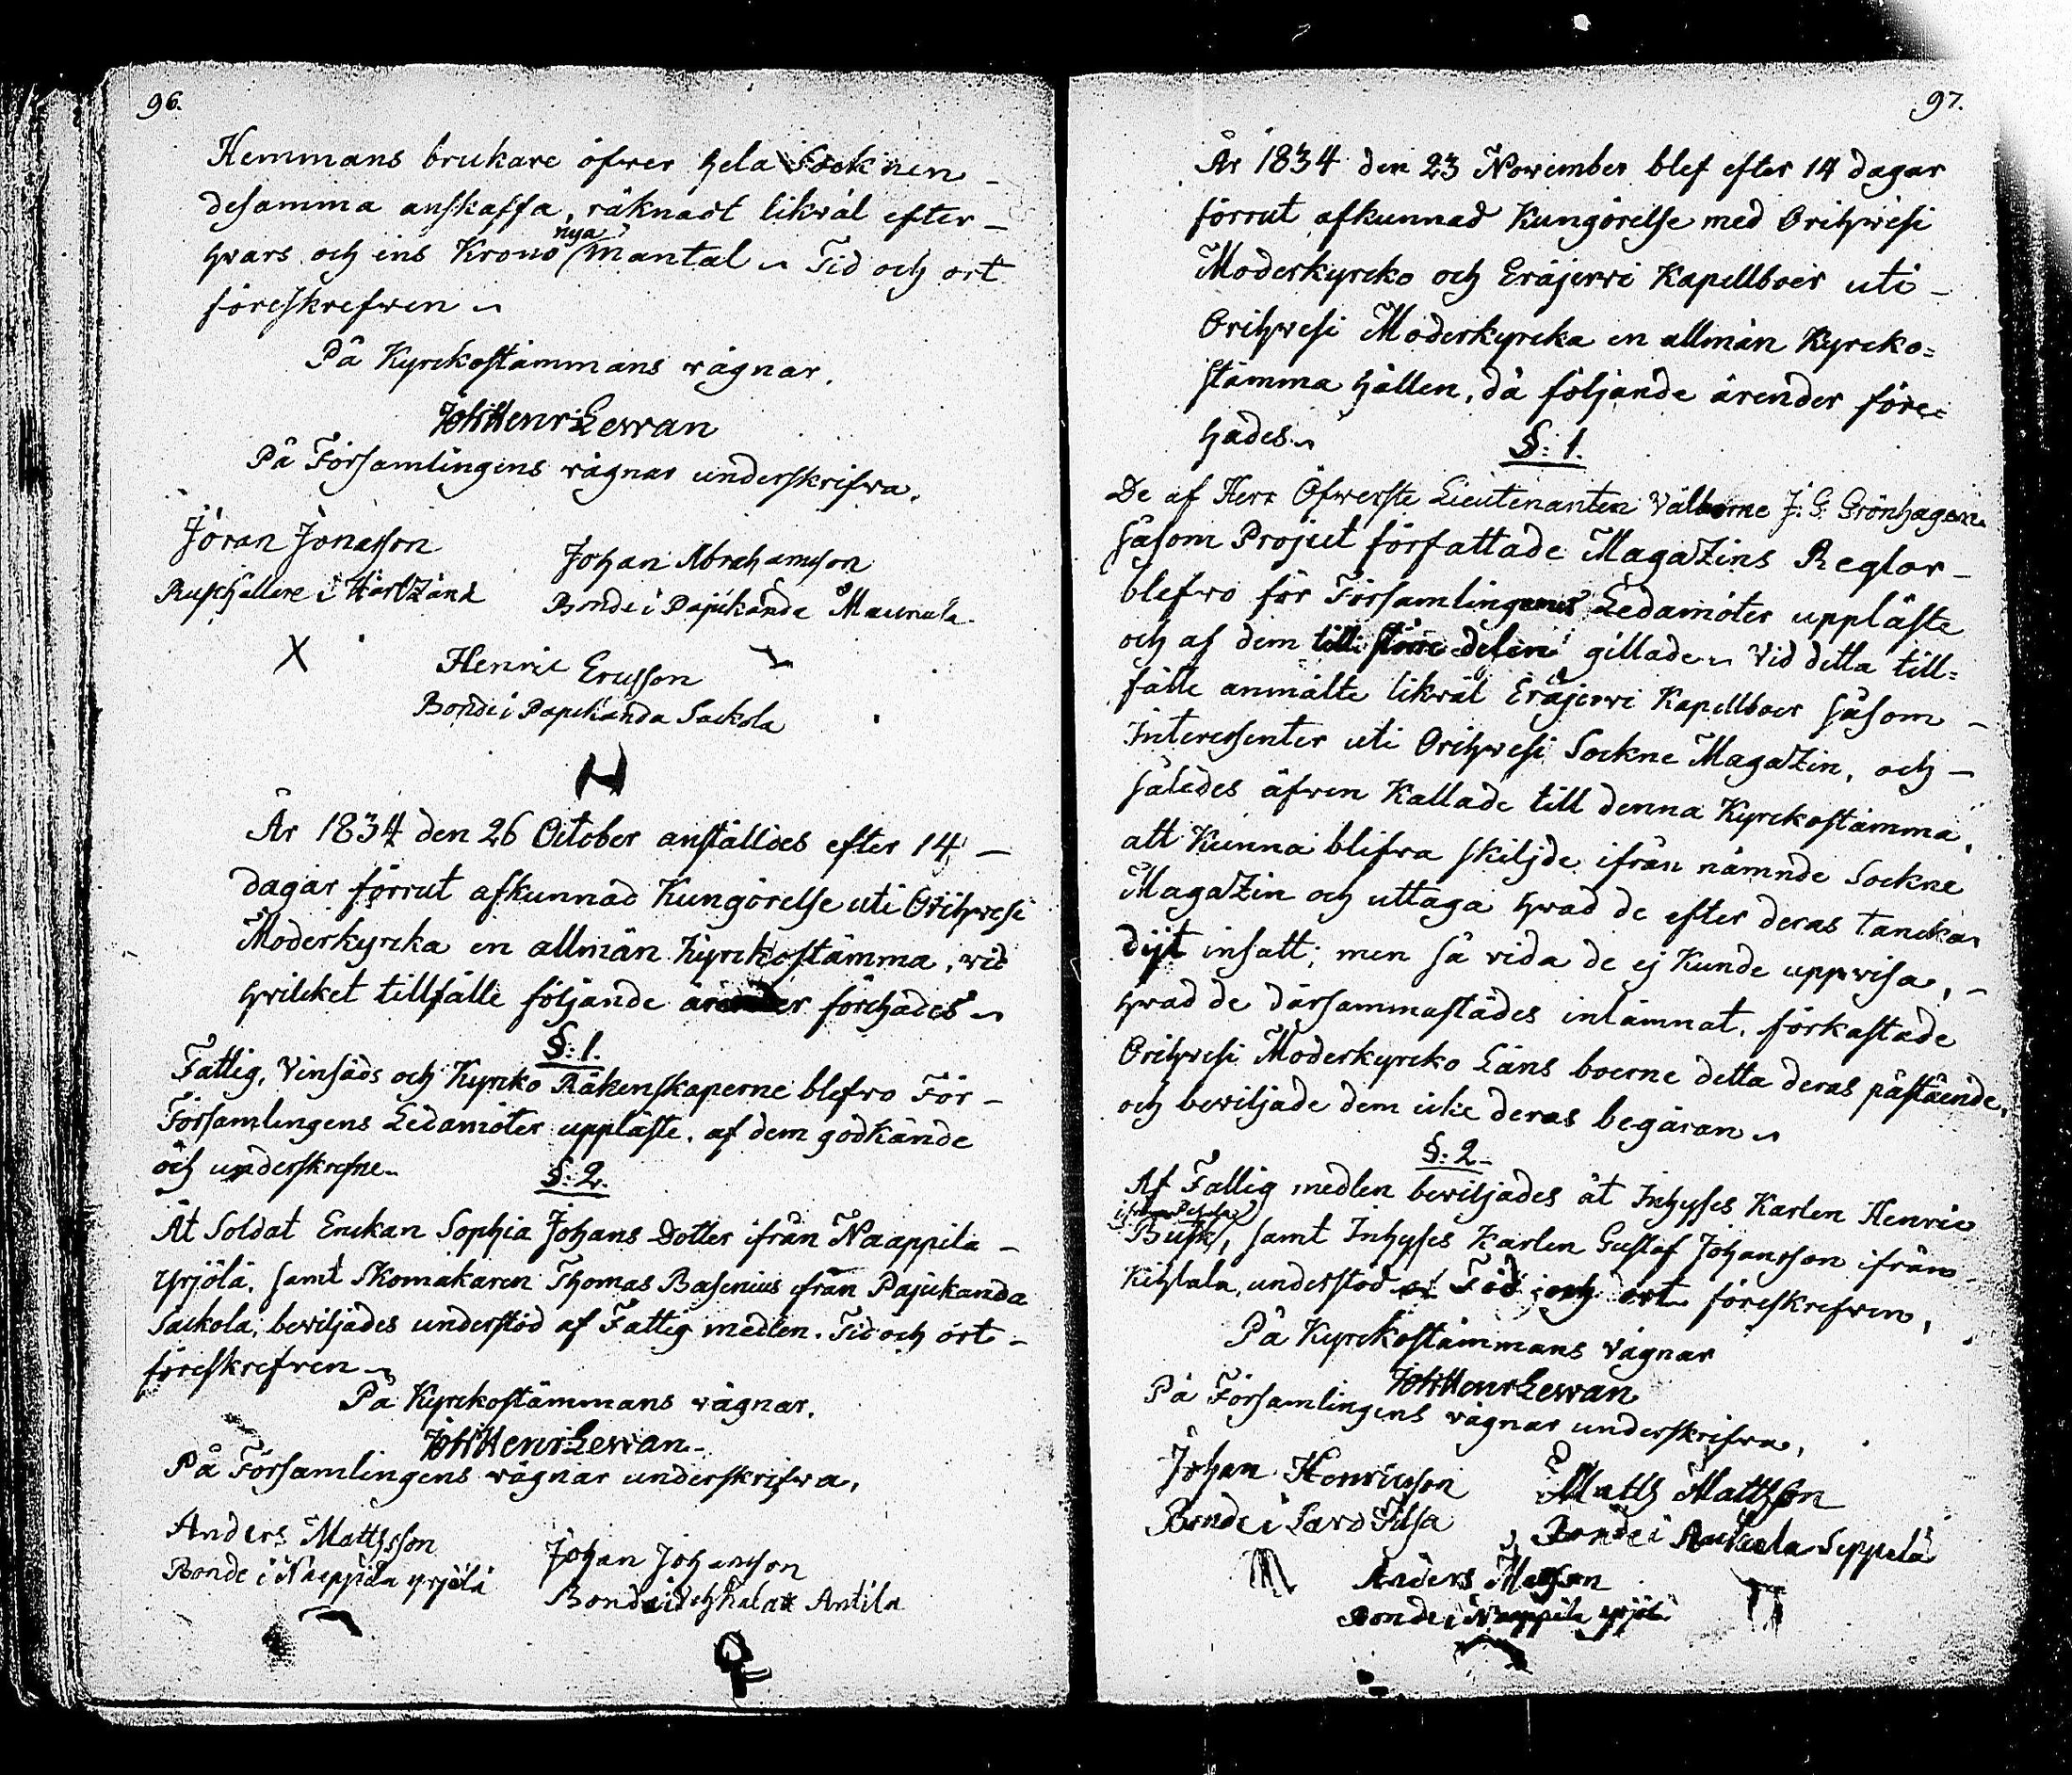 96.
Hemmans brukare öfwer hela Socknen
desamma anskaffa, räknadt likwäl efter
hwars och ens Krono nya mantal. Tid och ort
föreskrefwen.
På Kyrckostämmans wägnar.
Joh: Henr: Lewan
På Församlingens wägnar underskrifwa.
Jöran Jonasson
Rusthållare i
Johan Abrahamsson
Bonde i Pajukanda Maunula
X
Henric Ericsson
Bonde i Pajukanda Sackola
År 1834 den 26 October anställdes efter 14
dagar förrut afkunnad Kungörelse uti Orihwesi
Moderkyrcka en allmän Kyrckostämma, wid
hwilcket tillfälle följande ärender förehades.
§: 1.
Fattig, Vinsäds och Kyrcko Räkenskaperne blefwo För
Församlingens Ledamöter uppläste, af dem godkände
och underskrefne.
§: 2.
Åt Soldat Enckan Sophia Johans Dotter ifrån Naappila
Yrjölä, samt Skomakaren Thomas Basenius ifrån Pajukanda
Sackola, bewiljades understöd af Fattig medlen. Tid och ort
föreskrefwen.
På Kyrckostämmans wägnar.
Joh: Henr: Lewan.
På Församlingens wägnar underskrifwa.
Anders Mattsson
Bonde i Naappila Yrjölä
Johan Johansson
Bonde i Antila
97.
År 1834 den 23 November blef efter 14 dagar
förrut afkunnad Kungörelse med Orihwesi
Moderkyrcko och Eräjerwi Kapellboer uti
Orihwesi Moderkyrcka en allmän Kyrcko=
stämma hållen, då följande ärender före=
hades.
§: 1.
De af Herr Öfwerste Lieutenanten Välborne J: G: Grönhagen
såsom Project författade Magazins Reglor
blefwo för Församlingenes Ledamöter uppläste
och af dem till större delen gillade. Vid detta till=
fälle anmälte likwäl Eräjerwi Kapellboer såsom
Interessenter uti Orihwesi Sockne Magazin, och
således äfwen Kallade till denna Kyrckostämma,
att Kunna blifwa skiljde ifrån nämnde Sockne
Magazin och uttaga hwad de efter deras tanckar
dijt insatt; men så vida de ej Kunde uppwisa,
hwad de därsammastädes inlämnat, förkastade
Orihwesi Moderkyrcko Läns boerne detta deras påstående,
och bewiljade dem icke deras begäran.
§: 2.
Af Fattig medlen bewiljades åt Inhyses Karlen Henric
Busk, samt Inhyses Karlen Gustaf Johansson ifrån
understöd. Tid och ort föreskrefwen,
På Kyrckostämmans vägnar
Joh: Henr: Lewan
På Församlingens wägnar underskrifwa,
Johan Henricsson
Bonde i
Matts Mattsson
Bonde i Seppälä
Anders
Bonde i Naappila Yrjölä